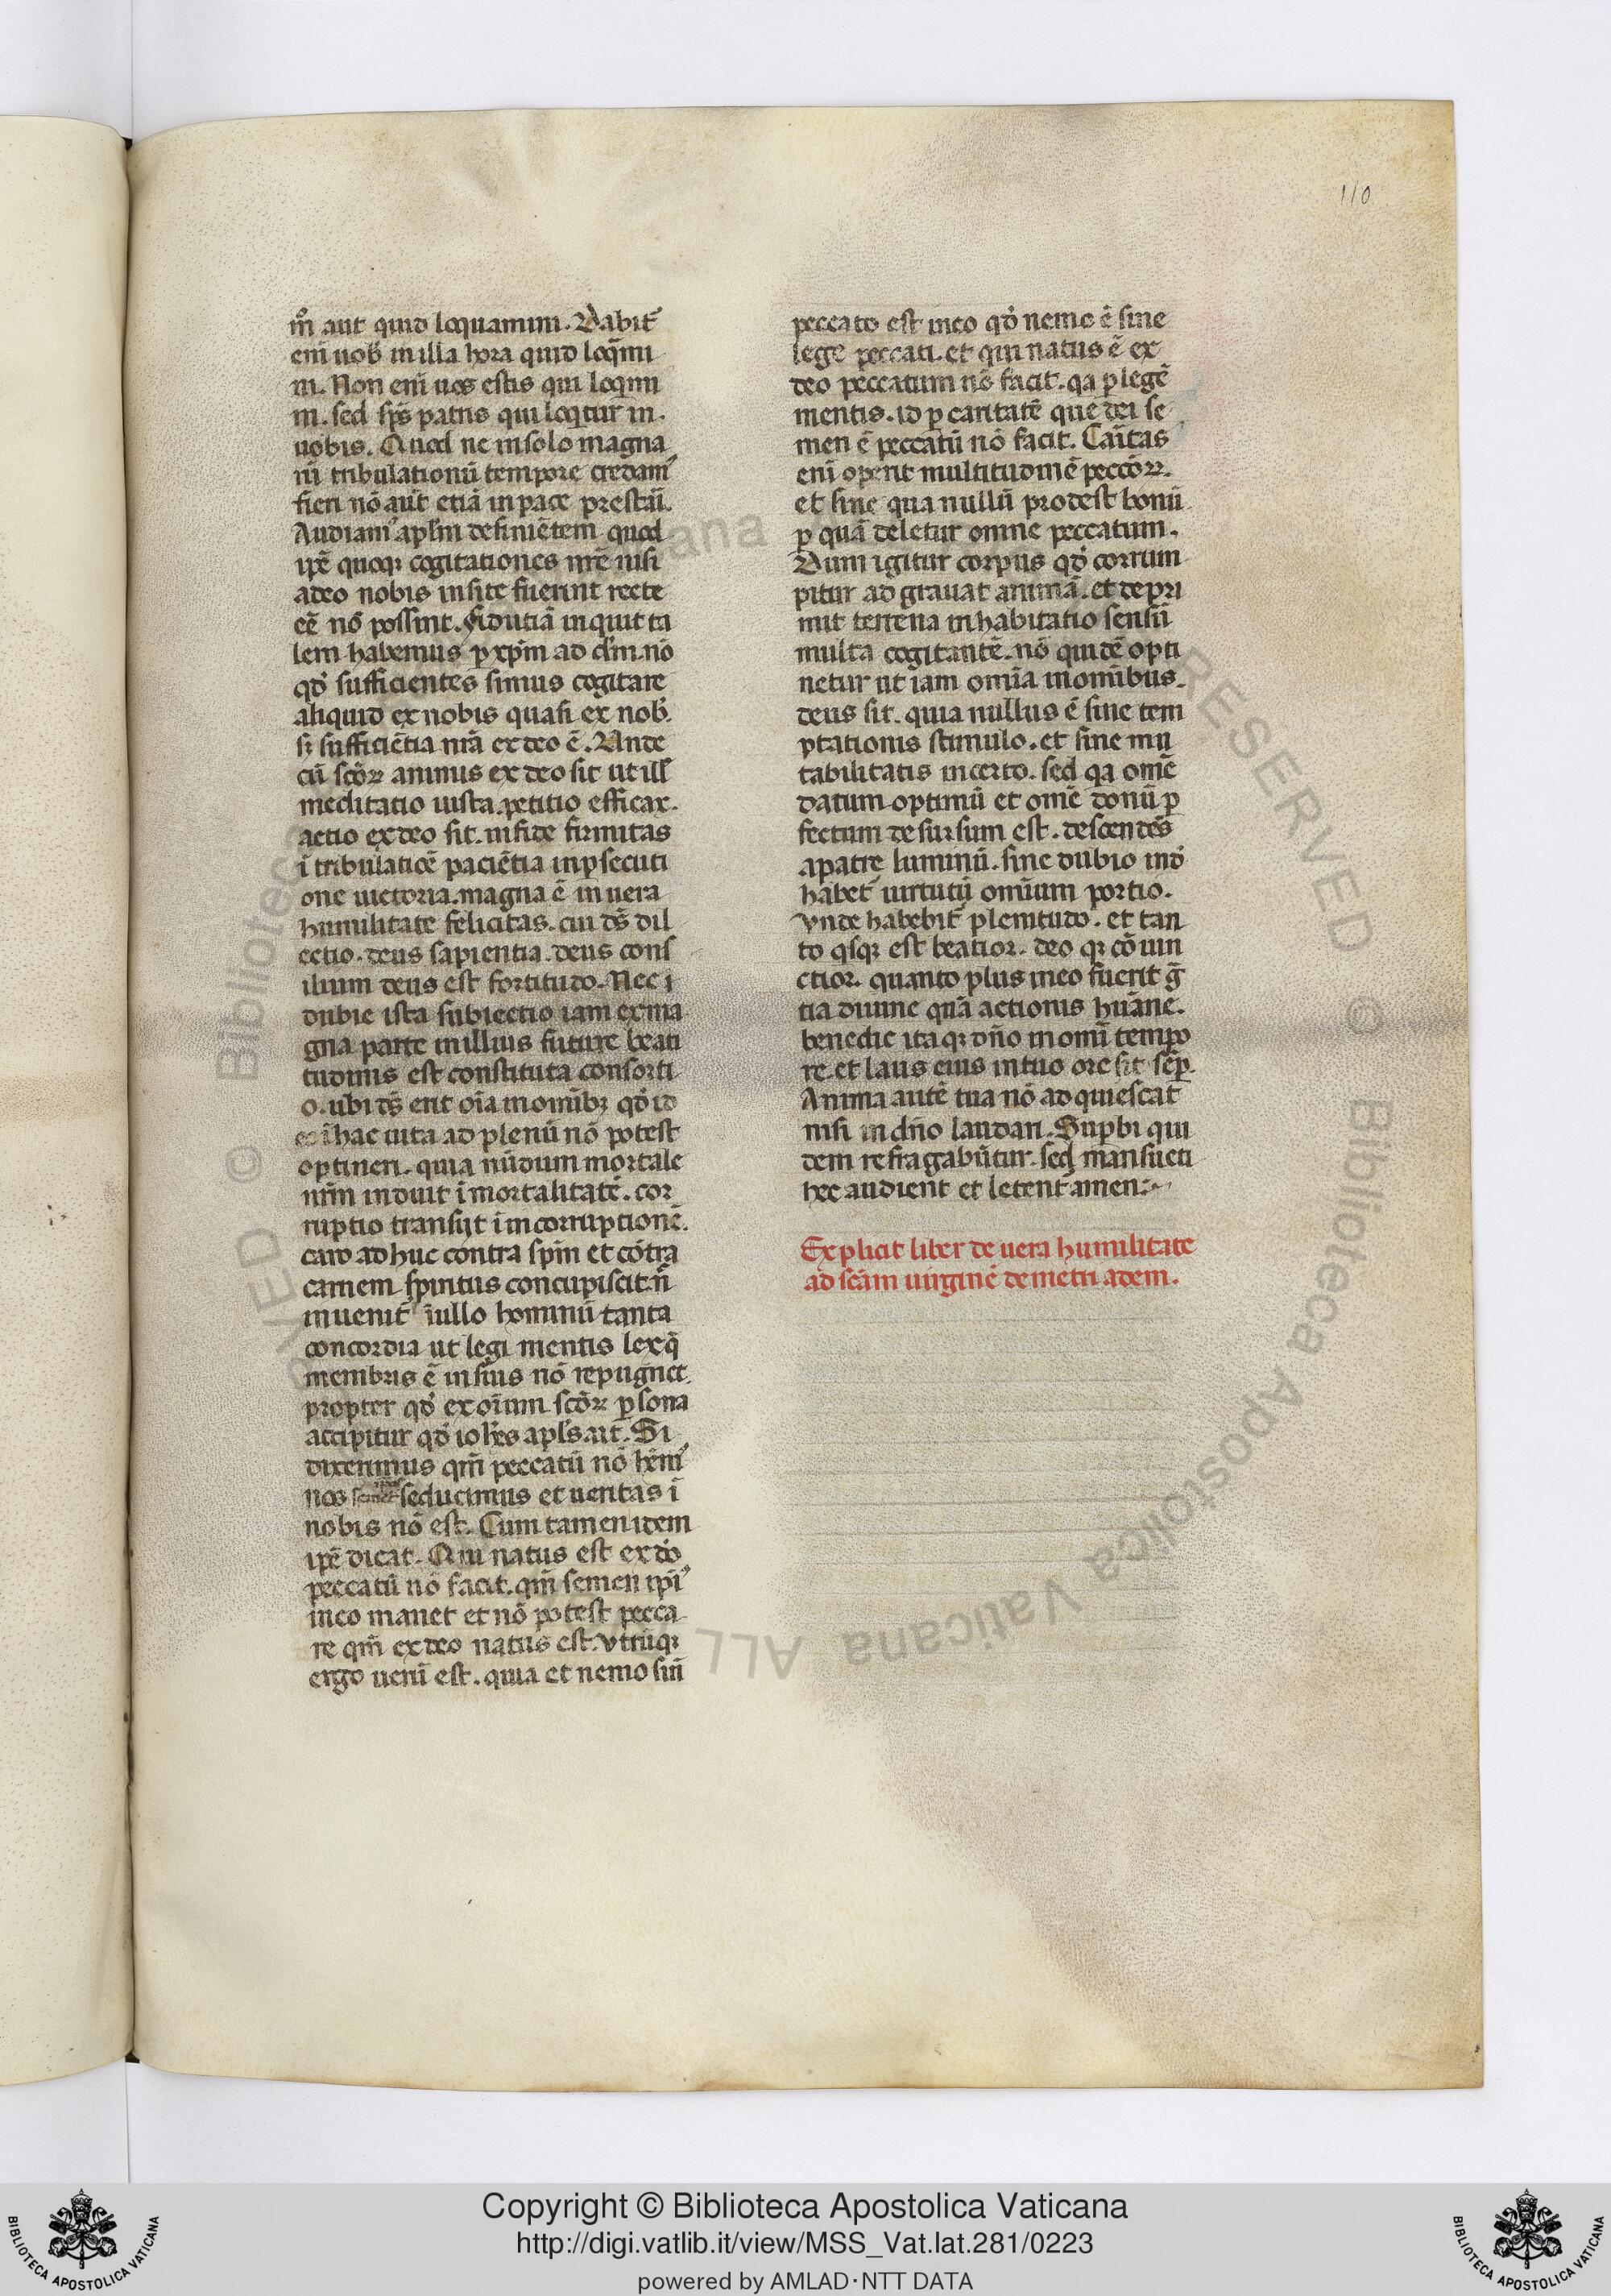 110
m̄ aut quid loquamini. Dabit᷑
eni᷑ uob̄ in illa hora quid loq̄mi
ni. Non eni᷑ uos estis qui loq̄mi
ni. sed sp̄s patris qui loq̄tur in.
uobis. Quod ne in solo magna
rū tribulationū tempore credam᷒
fieri nō aūt etiā in pace prestā.
Audiam᷒ apl̄m definiētem quod
ip̄e quoq; cogitationes nr̄e nisi
a deo nobis insite fuerint recte
eē nō possint. Fidutiā inquit ta
lem habemus p xp̄m ad d̄m. nō
qđ sufficientes simus cogitare
aliquid ex nobis quasi ex nob̄.
s; sufficiētia nr̄a ex deo ē. Unde
cū sc̄oꝝ animus ex deo sit ut ill᷒
meditatio iusta. petitio efficax.
actio ex deo sit. in fide firmitas
ī tribulatiōe paciētia in psecuti
one uictoria. magna ē in uera
humilitate felicitas. cui dš dil
ectio. deus sapientia. deus cons
ilium deus est fortitudo. Nec ī
dubie ista subiectio iam ex ma
gna parte in illius future beati
tudinis est constituta consorti
o. ubi dš erit oīa in omīb; qđ id
ī hac uita ad plenū nō potest
optineri. quia nūdum mortale
nr̄m induit īmortalitatē. cor
ruptio transijt ī incorruptionē.
caro adhuc contra sp̄m et cōtra
carnem spiritus concupiscit. n̄
inuenit᷑ ī ullo hominū tanta
concordia ut legi mentis lex q̄
membris ē insitus nō repugnet.
propter qđ ex oīum sc̄oꝝ p̱sona
accipitur qđ ioh̄es apl̄s ait. Si
dixerimus qm̄ peccatū nō hēm᷒
nos seducimus et ueritas ī
nobis nō est. Cum tamen idem
ip̄e dicat. Qui natus est ex dō
peccatū nō facit. qm̄ semen ip̄i᷒
in eo manet et nō potest pecca
re qm̄ ex deo natus est. Vtrūq;
ergo ueru᷑ est. quia et nemo sin̄
peccato est in eo qđ nemo ē sine
lege peccati. et qui natus ē ex
deo peccatum nō facit. qa p̱ legē
mentis. id p̱ caritatē que dei se
men ē peccatū nō facit. Cāitas
eni᷑ operit multitudinē pecc̄oꝝ.
et sine qua nullū prodest bonū
p̱ quā deletur omne peccatum.
Dum igitur corpus qđ corrum
pitur ad grauat animā. et depri
mit terrena inhabitatio sensū
multa cogitantē. nō quidē opti
netur ut iam omīa in omībus.
deus sit. quia nullus ē sine tem
ptationis stimulo. et sine mu
tabilitatis incerto. sed qa omē
datum optimū et omē donū p̱
fectum desursum est. descendēs
a patre luminū. sine dubio mō
habet᷑ uirtutū omīum portio.
Vnde habebit᷑ plenitudo. et tan
to qsq; est beatior. deo q; cōiun
ctior. quanto plus in eo fuerit ḡ
tia diuine quā actionis huāne.
benedic itaq; dn̄o in omī tempo
re. et laus eius in tuo ore sit sēp̱.
Anima autē tua nō adquiescat
nisi in dn̄o laudari. Sup̱bi qui
dem refragabūtur. sed mansueti
hec audient et letent᷑ amen:~
Explicit liber de uera humilitate
ad sc̄am uirginē demetriadem.
© Biblioteca Apostolica Vaticana ALL RIGHTS RESERVED
Copyright © Biblioteca Apostolica Vaticana
http://digi.vatlib.it/view/MSS_Vat.lat.281/0223
powered by AMLAD·NTT DATA
BIBLIOTECA APOSTOLICA VATICANA
BIBLIOTECA APOSTOLICA VATICANA